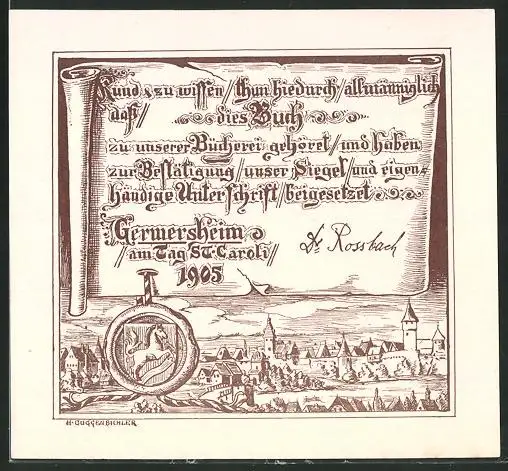 Kund & zu wissen / thun hiedurch / allmänniglich
daß / dies Buch
zu unserer Bücherei gehöret / und haben
zur Bestätigung / unser Siegel / und eigen=
händige Unterschrift / beigesetzet
Germersheim
/ am Tag St. Caroli /
1905
Dr. Rossbach
H. GUGGENBICHLER